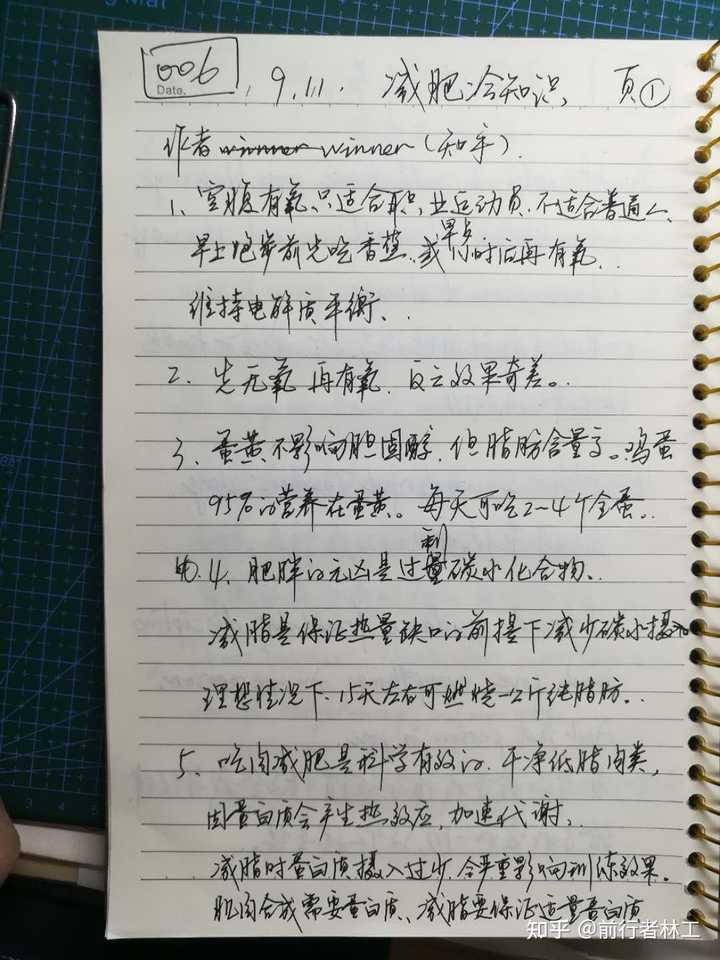 006 Date. 9.11. 减肥冷知识、 页①
作者 winner winner (知乎).
1、空腹有氧只适合职业运动员、不适合普通人、
早上跑步前先吃香蕉、或早点1小时后再有氧、
维持电解质平衡、
2、先无氧再有氧、反之效果奇差。
3、蛋黄不影响胆固醇、但脂肪含量高。鸡蛋
95%的营养在蛋黄。每天可吃2~4个全蛋。
4、肥胖的元凶是过剩碳水化合物、
减脂是保证热量缺口的前提下减少碳水摄入
理想情况下、15天左右可燃烧一公斤纯脂肪。
5、吃肉减肥是科学有效的、干净低脂肉类,
因蛋白质会产生热效应、加速代谢、
减脂时蛋白质摄入过少、会严重影响训练效果。
肌肉合成需要蛋白质、减脂要保证适量蛋白质
知乎 @前行者林工